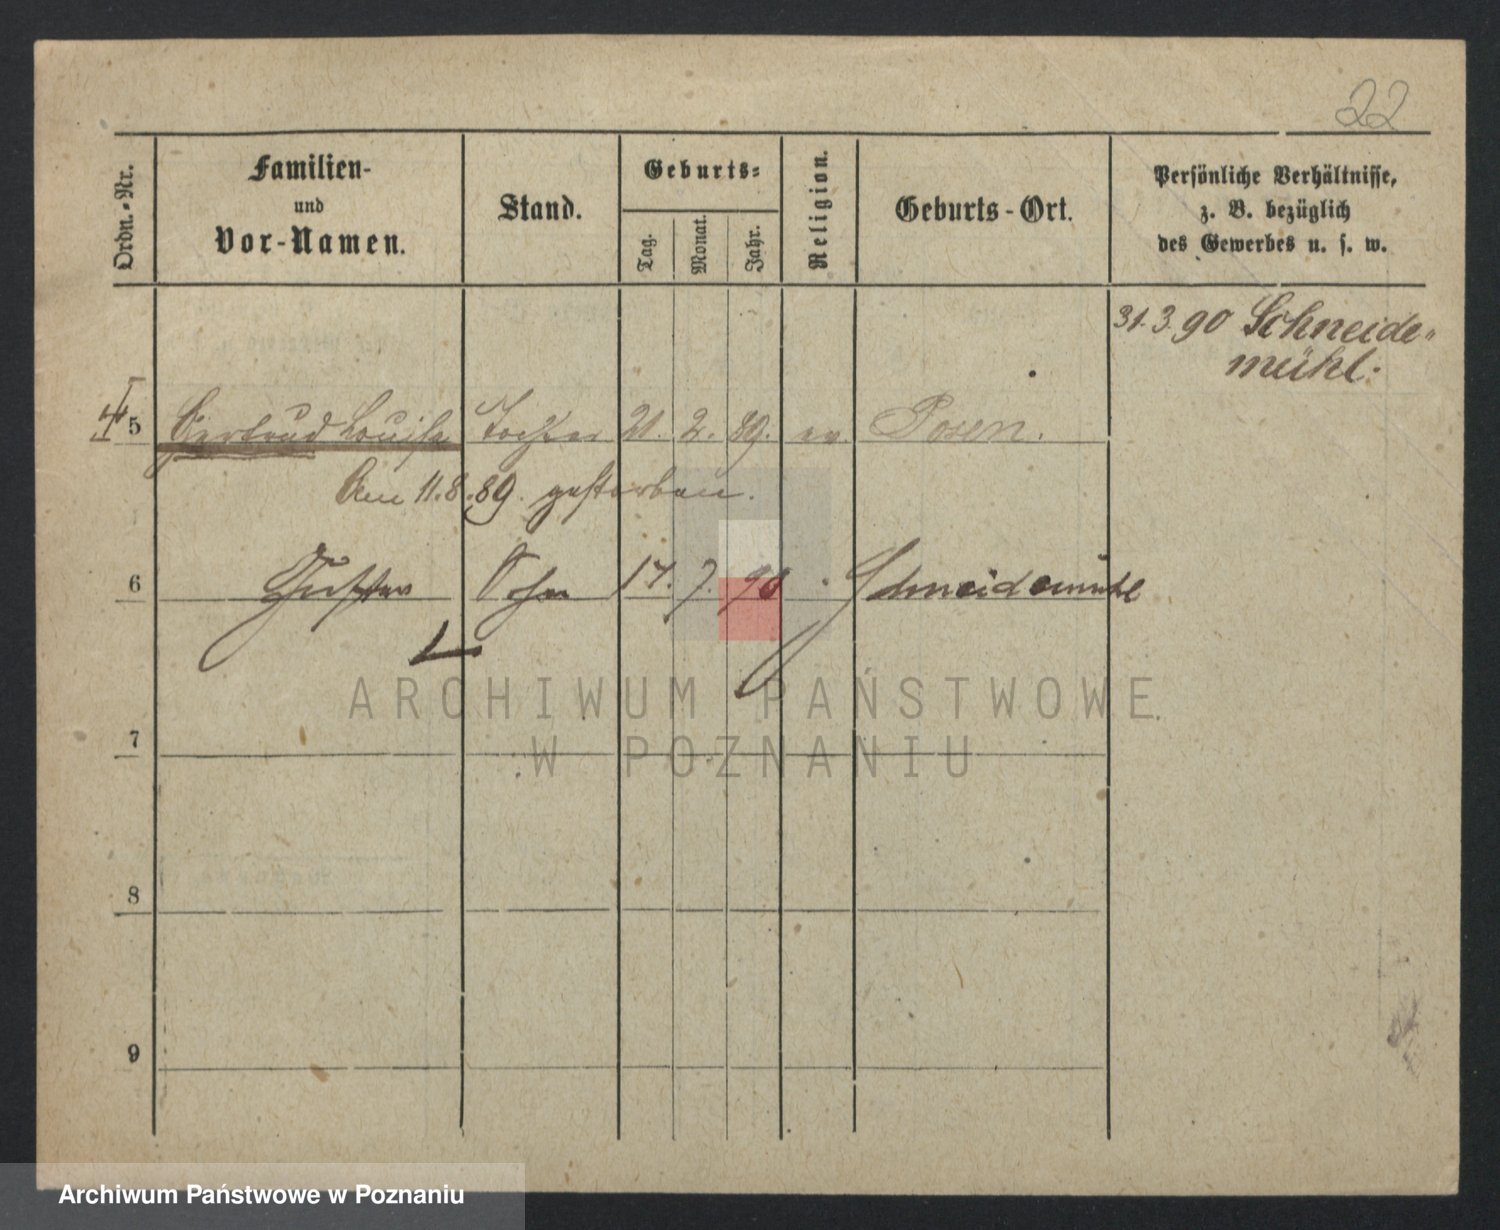 22
Ordn.-Nr.
Familien-
und
Vor-Namen.
Stand.
Geburts-
Tag.
Monat.
Jahr.
Religion.
Geburts-Ort.
Persönliche Verhältnisse,
z. B. bezüglich
des Gewerbes u. s. w.
31.3.90 Schneide-
mühl.
5 Gertrud Louise Tochter 21. 2. 89. ev. Posen.
Am 11.8.89. gestorben.
6 Gustav Sohn 17. 7. 90 Schneidemühl
7
8
9
ARCHIWUM PAŃSTWOWE
W POZNANIU
Archiwum Państwowe w Poznaniu